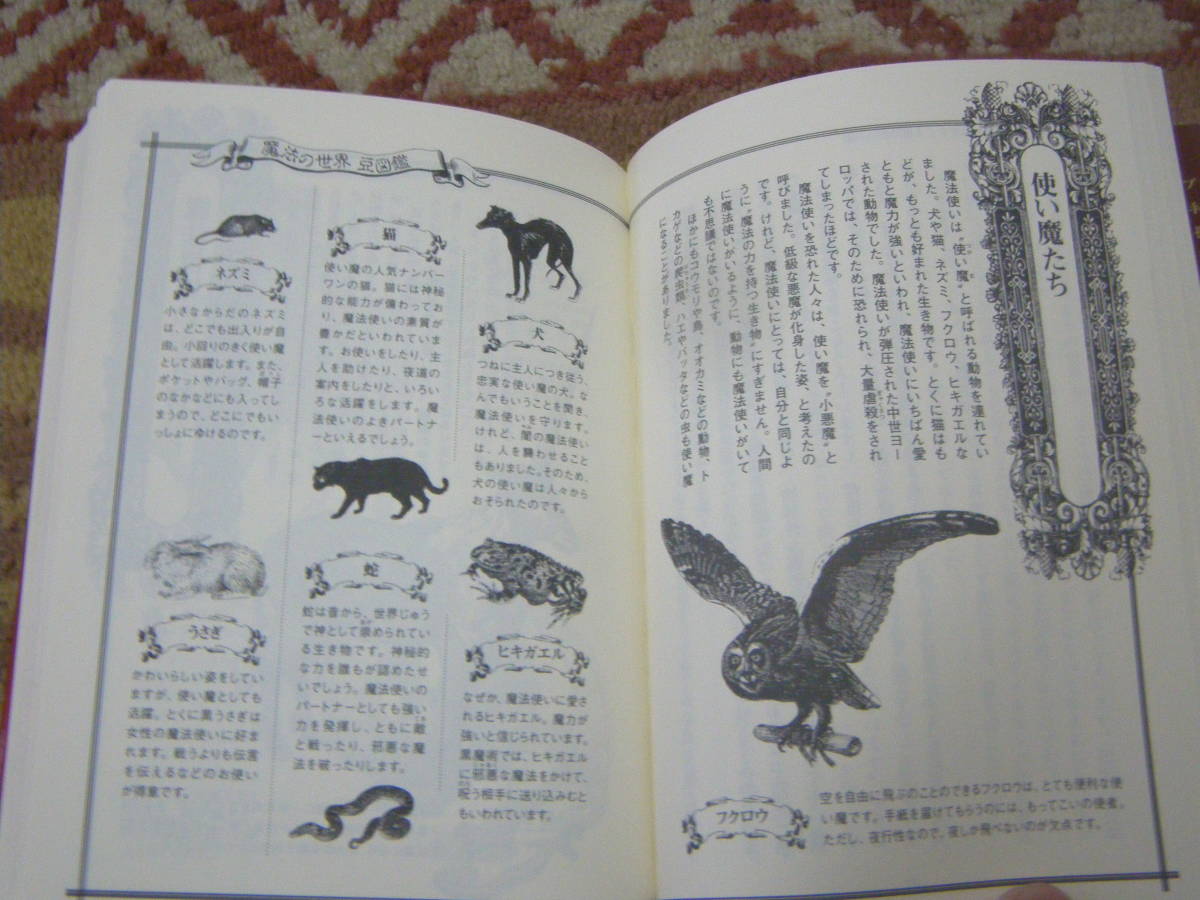 使い魔たち
魔法使いは〝使い魔〟と呼ばれる動物を連れてい
ました。犬や猫、ネズミ、フクロウ、ヒキガエルな
どが、もっとも好まれた生き物です。とくに猫はも
っとも魔力が強いといわれ、魔法使いにいちばん愛
された動物でした。魔法使いが弾圧された中世ヨー
ロッパでは、そのために恐れられ、大量虐殺をされ
てしまったほどです。
魔法使いを恐れた人々は、使い魔を〝小悪魔〟と
呼びました。低級な悪魔が化身した姿、と考えたの
です。けれど、魔法使いにとっては、自分と同じよ
うに〝魔法の力を持つ生き物〟にすぎません。人間
に魔法使いがいるように、動物にも魔法使いがいて
も不思議ではないのです。
ほかにもコウモリや鳥、オオカミなどの動物、ト
カゲなどの爬虫類、ハエやバッタなどの虫も使い魔
になることがありました。
フクロウ
空を自由に飛ぶのことのできるフクロウは、とても便利な使
い魔です。手紙を届けてもらうのには、もってこいの使者。
ただし、夜行性なので、夜しか飛べないのが欠点です。
魔法の世界 豆図鑑
犬
つねに主人につき従う、
忠実な使い魔の犬。な
んでもいうことを聞き、
魔法使いを守ります。
けれど、闇の魔法使い
は、人を襲わせること
もありました。そのため、
犬の使い魔は人々から
おそられたのです。
ヒキガエル
なぜか、魔法使いに愛さ
れるヒキガエル。魔力が
強いと信じられています。
黒魔術では、ヒキガエル
に邪悪な魔法をかけて、
呪う相手に送り込みむと
もいわれています。
猫
使い魔の人気ナンバー
ワンの猫。猫には神秘
的な能力が備わってお
り、魔法使いの素質が
豊かだといわれていま
す。お使いをしたり、主
人を助けたり、夜道の
案内をしたりと、いろい
ろな活躍をします。魔
法使いのよきパートナ
ーといえるでしょう。
蛇
蛇は昔から、世界じゅう
で神として崇められてい
る生き物です。神秘的
な力を誰もが認めたせ
いでしょう。魔法使いの
パートナーとしても強い
力を発揮し、ともに敵
と戦ったり、邪悪な魔
法を破ったりします。
ネズミ
小さなからだのネズミ
は、どこでも出入りが自
由。小回りのきく使い魔
として活躍します。また、
ポケットやバッグ、帽子
のなかなどにも入ってし
まうので、どこにでもい
っしょにゆけるのです。
うさぎ
かわいらしい姿をしてい
ますが、使い魔としても
活躍。とくに黒うさぎは
女性の魔法使いに好ま
れます。戦うよりも伝言
を伝えるなどのお使い
が得意です。